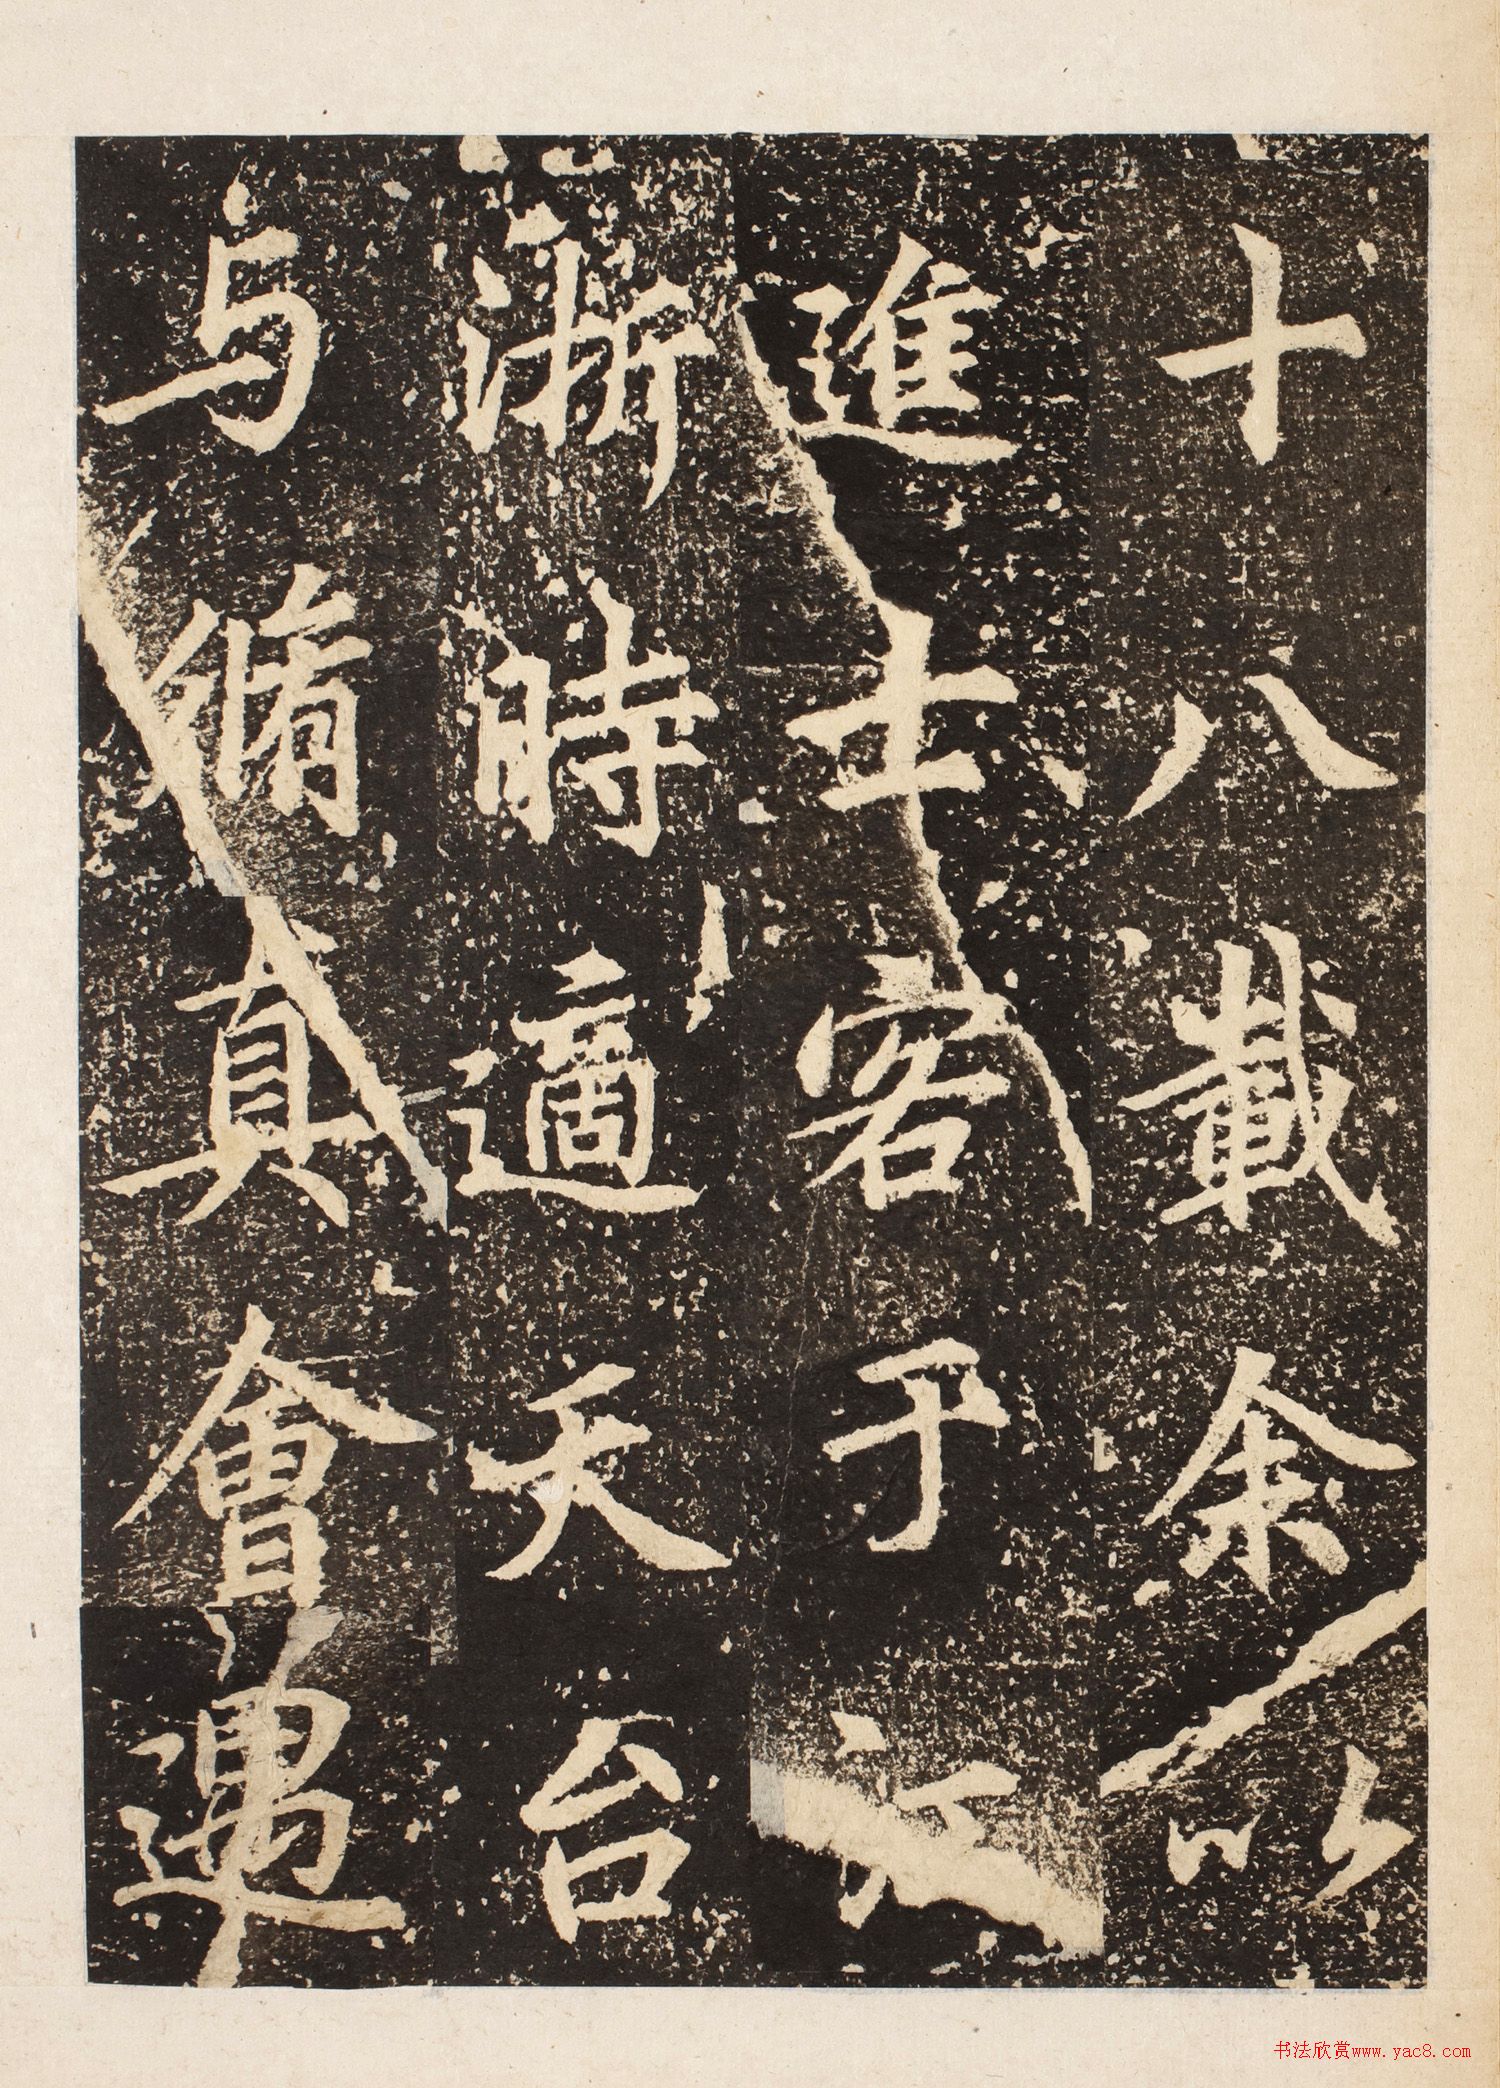 十八載余以
進士客于江
淛時適天台
与脩真會遇
书法欣赏www.yac8.com